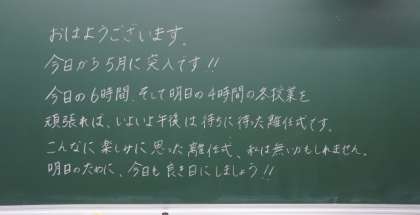 おはようございます。
今日から5月に突入です!!
今日の6時間、そして明日の4時間の各授業を
頑張れば、いよいよ午後は待ちに待った離任式です。
こんなに楽しみに思った離任式、私は無いかもしれません。
明日のために、今日も良き日にしましょう!!